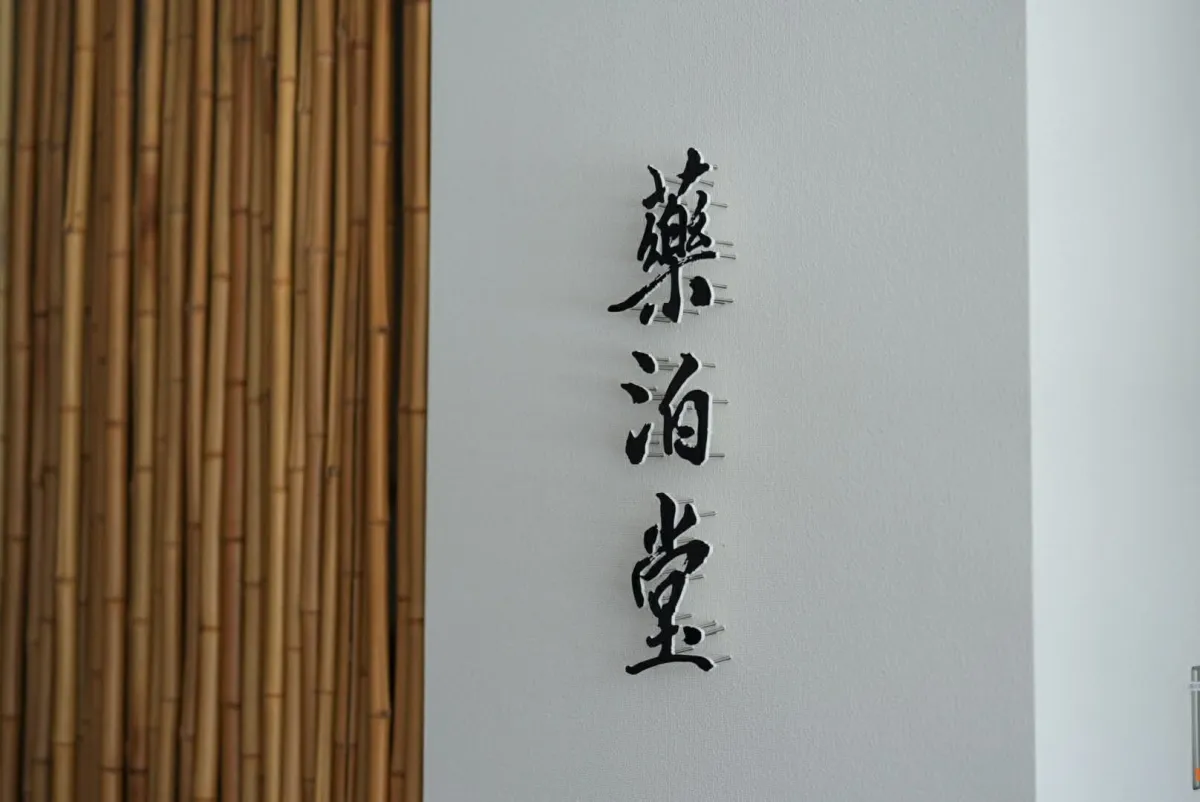 藥泊堂